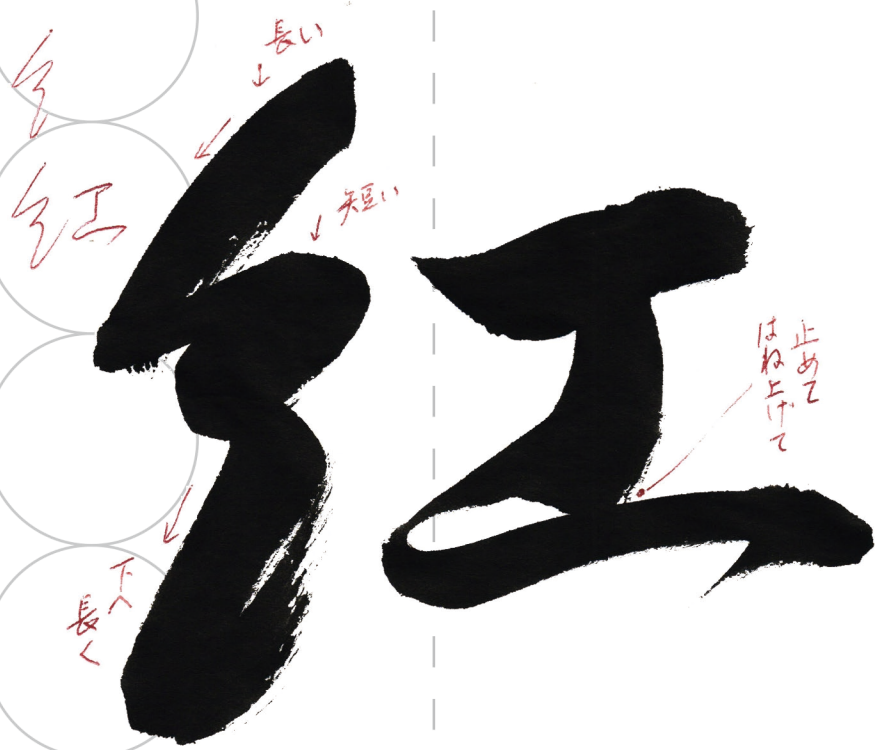 長い
短い
紅
紅
止めて
はね上げて
下へ
長く